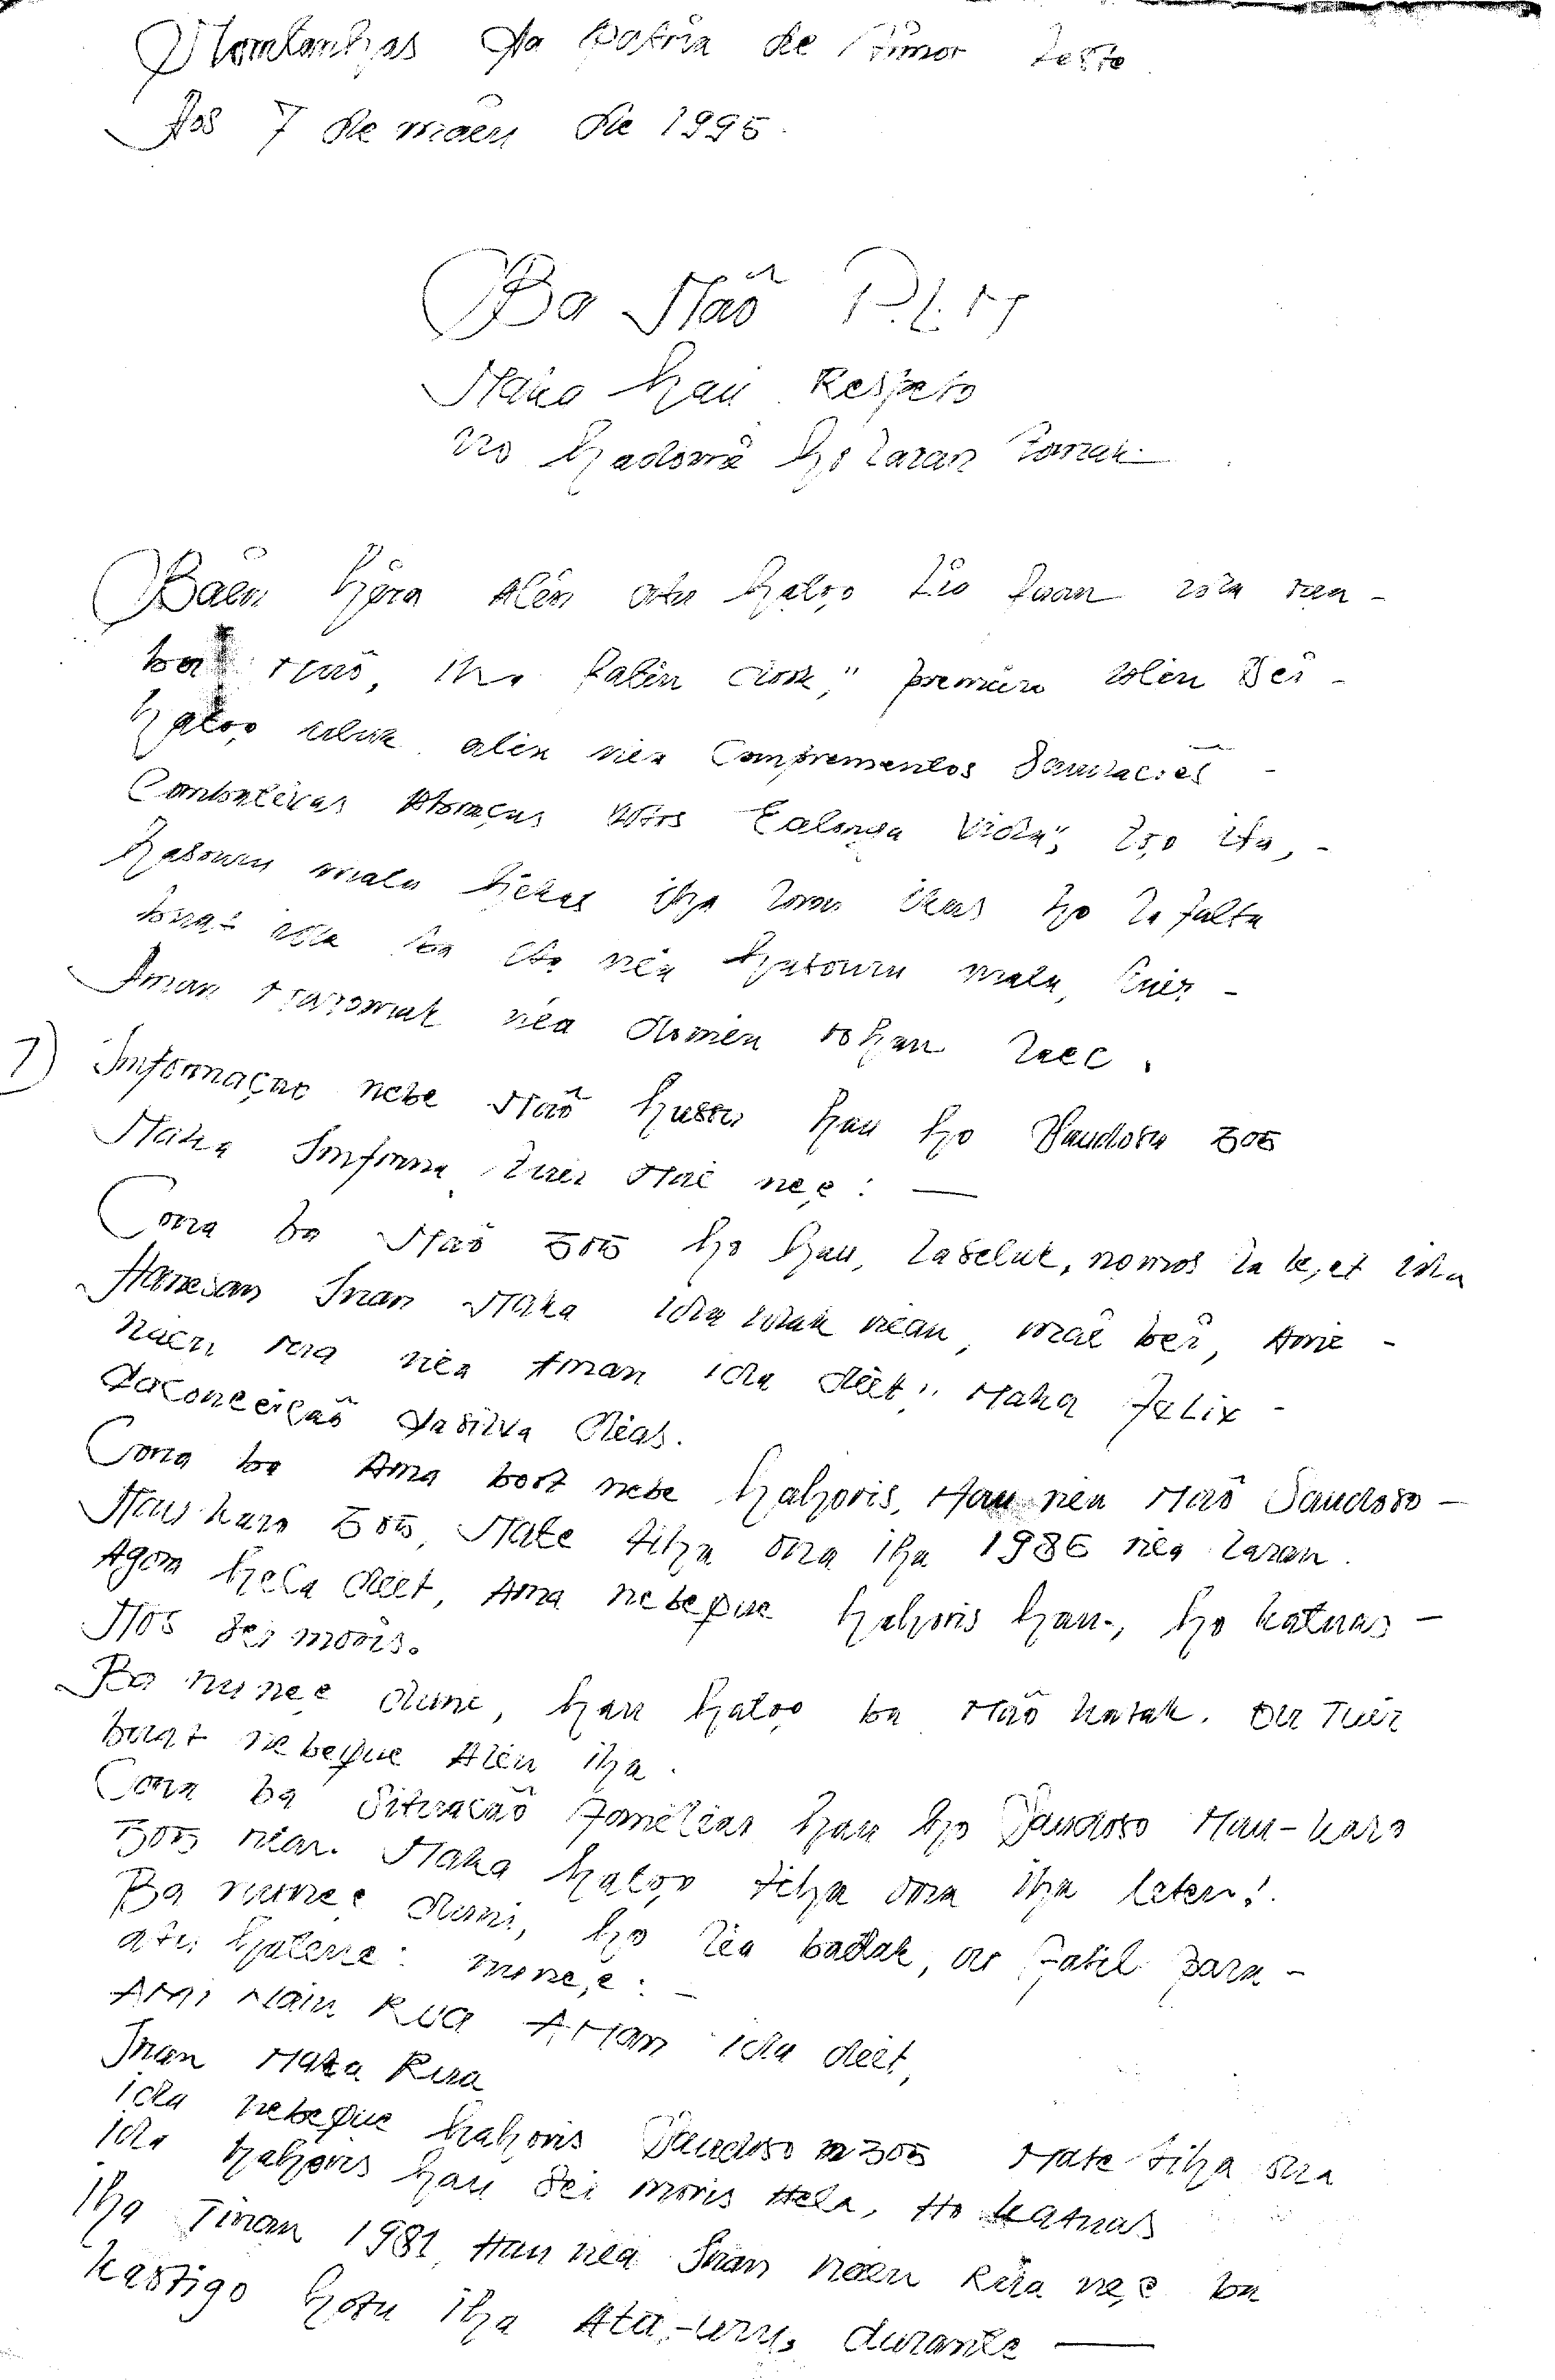 Montanhas da Patria de Timor Leste
Aos 7 de maeu de 1995.
Ba Maõ P.L.M
Maka hau Respeto
no hadomi ho Laran Tomak
Baen hera Alin atu hato,o Lia fuan ida rua -
ba maõ, iha fatin
hato,o uluk alin nia Comprementos Saudacões -
Combativas Abraços Votos Ealonga Vida", Lo,o ita, -
hasouru malu hikas iha loron ikus ho La falta
buat ida ba ita nia hasouru malu, tuir -
Aman Maromak nia domin rohan laec.
1) Imformaçao nebe Maõ hussu hau ho Saudoso 305
Maka Imforma tuir Mai ne,e: —
Cona ba Maõ 305 ho hau, Laseluk, nomos La le,et ida
Hanesan Inan Maka ida idak niau, mai bei, Ami -
nain rua nia Aman ida deit", Maka Felix -
daConceiçaõ dasilva Dias.
Cona ba Ama bort nebe hahoris, Hau nia Maõ Saudoso -
Mau-karo 305, Mate tiha ona iha 1986 nia laran.
Agora hela deit, Ama nebeque hahoris hau, ho katuas -
Mos sei moris.
Ba nune,e dumi, hau hato,o ba Maõ katak. Tuir
buat nebeque Alin iha.
Cona ba Situacaõ familias hau ho Saudoso Mau-karo
305 nian. Maka hato,o tiha ona iha leten!.
Ba nune,e dumi, ho lia badak, ou fasil para -
atu halene: nune,e: -
AMi Nain RUA AMan ida deit,
Inan Maka Rua
ida nebeque hahoris Saudoso 305 Mate tiha ona
ida hahoris hau sei moris Hela, Ho katuas
iha Tinan 1981, Hau nia Inan nain Rua ne,e ba
kastigo hotu iha Ata,-uru, durante —